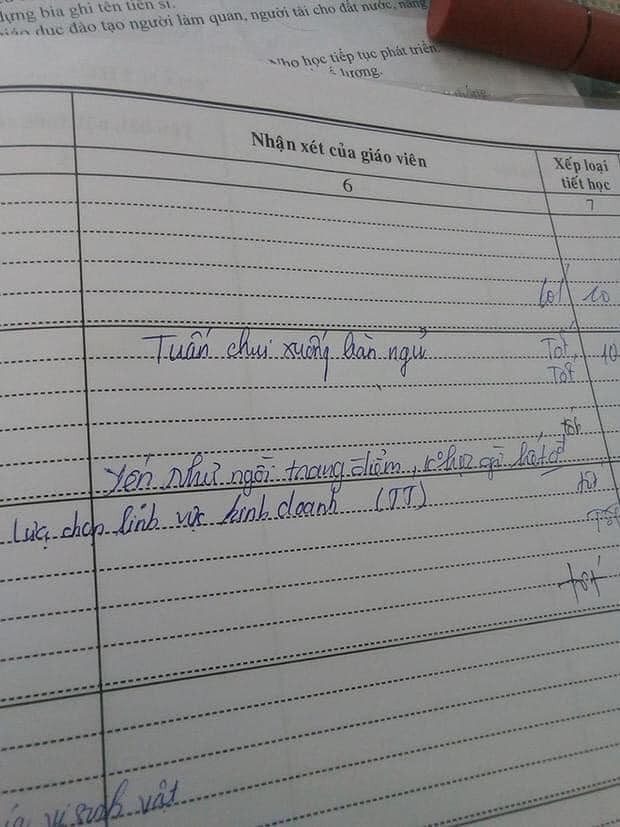 dựng bia ghi tên tiến sĩ.
giáo dục đào tạo người làm quan, người tài cho đất nước, nâng
Nho học tiếp tục phát triển.
lượng.
Nhận xét của giáo viên
Xếp loại tiết học
6
7
tốt 10
Tuấn chui xuống bàn ngủ
Tốt, 10
Tốt
tốt
Yến Như ngồi trang điểm, học gì hết
Lựa chọn lĩnh vực kinh doanh (TT)
tốt
Tốt
tốt
vi sinh vật